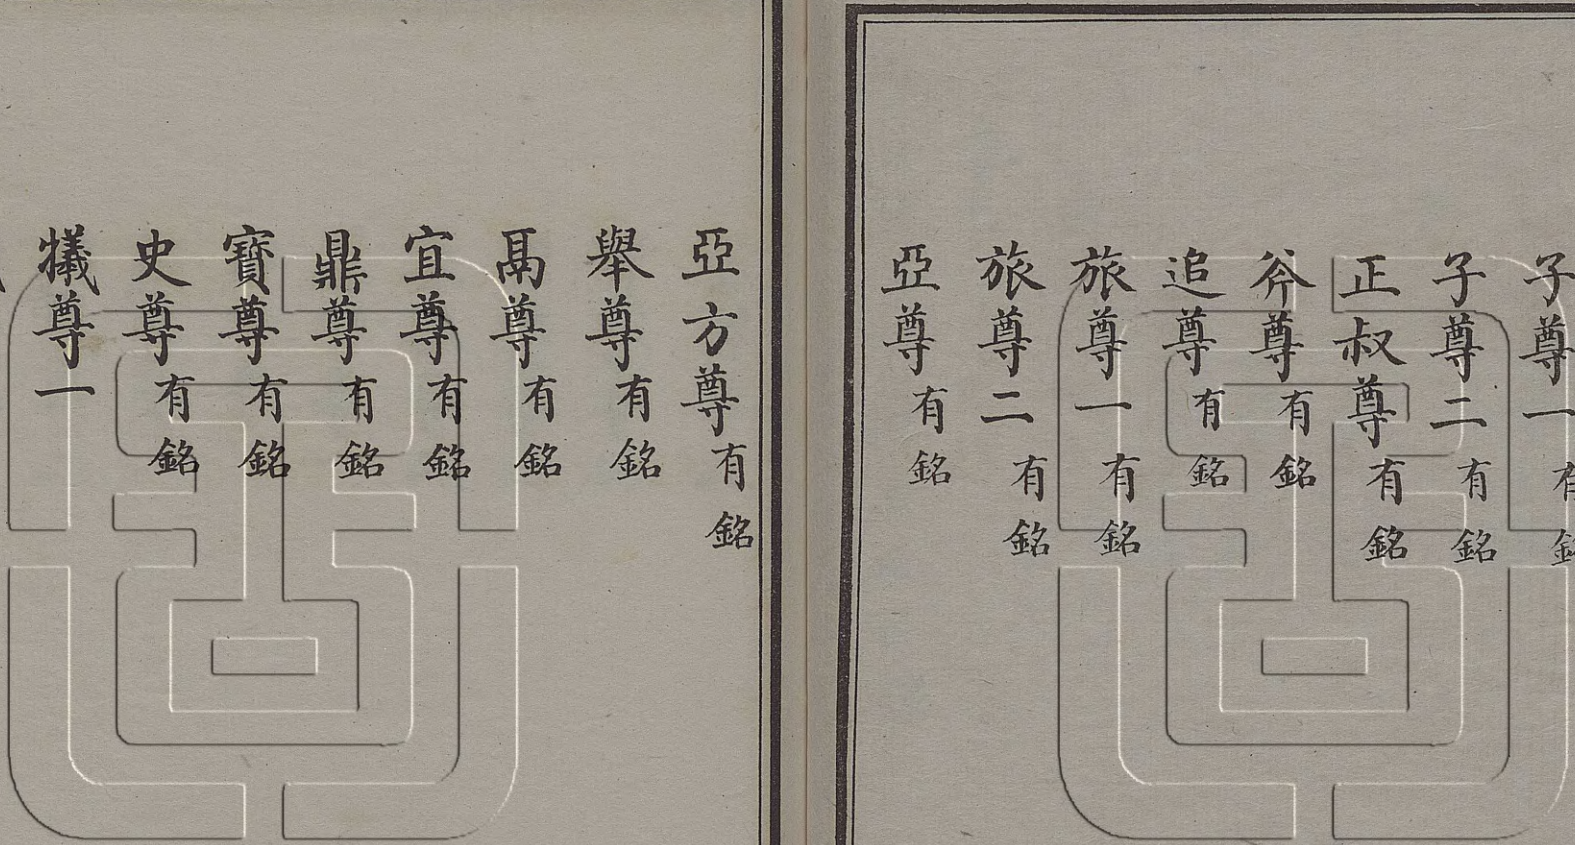 子尊一有銘
子尊二有銘
正叔尊有銘
斧尊有銘
追尊有銘
旅尊一有銘
旅尊二有銘
亞尊有銘
亞方尊有銘
舉尊有銘
鬲尊有銘
宜尊有銘
鼎尊有銘
寶尊有銘
史尊有銘
犧尊一